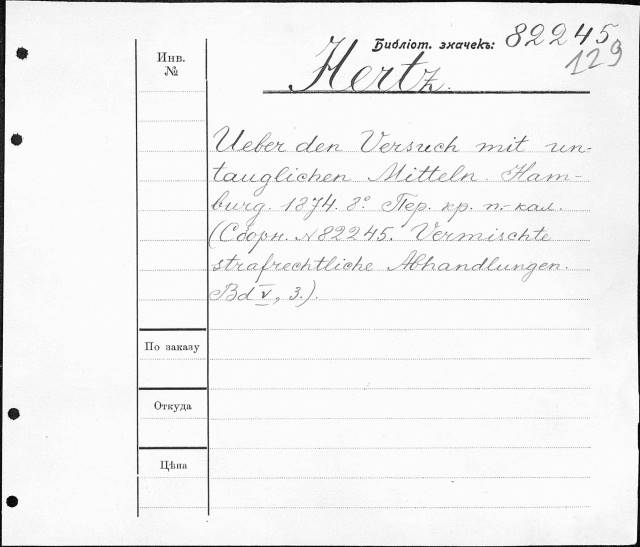 Библіот. значекъ: 82245
129
Инв.
№
Hertz.
Ueber den Versuch mit un-
tauglichen Mitteln. Ham-
burg. 1874. 8º. Пер. кр. п.-кал.
(Сборн. №82245. Vermischte
strafrechtliche Abhandlungen.
Bd V, 3.).
По заказу
Откуда
Цѣна